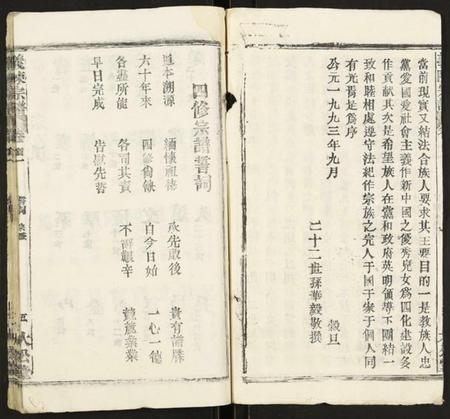 當前現实又結法合族人要求其主要目的一是教族人忠
黨愛國愛社會主義作新中國之優秀兒女為四化建設多
作貢献其次是希望族人在黨和政府英明領導下團結一
致和睦相處遵守法紀作宗族之完人于國于家于個人同
有光焉是為序
公元一九九三年九月 穀旦
二十二世孫華毅敬撰
四修宗譜誓詞
追本溯源 緬懷祖德 承先啟後 貴有譜牒
六十年來 四修尚缺 自今日始 一心一德
各盡所能 各司其責 不辭艱辛 兢兢業業
早日完成 告慰先哲
宗譜
誓詞
五